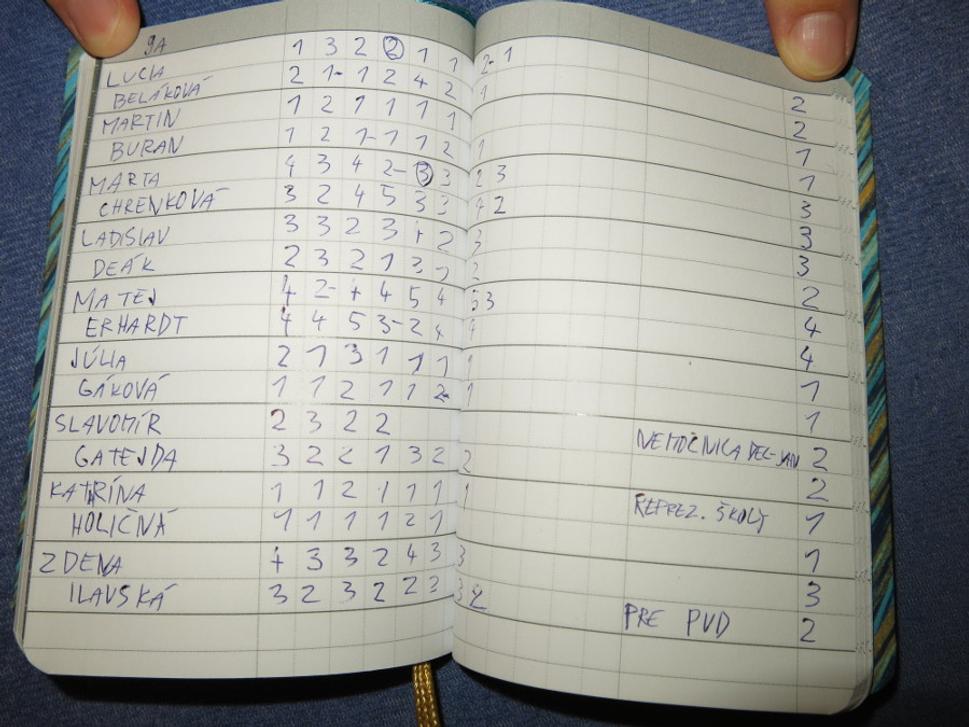 9A
LUCIA 1 3 2 2 1 1 2- 1 2
BELÁKOVÁ 2 1- 1 2 4 2 1 2
MARTIN 1 2 1 1 1 1 1
BURAN 1 2 1- 1 1 2 1 1
MARTA 4 3 4 2- 3 3 2 3 3
CHRENKOVÁ 3 2 4 5 3 3 4 2 3
LADISLAV 3 3 2 3 + 2 3 3
DEÁK 2 3 2 1 3 1 2 2
MATEJ 4 2- + 4 5 4 5 3 4
ERHARDT 4 4 5 3- 2 4 4 4
JÚLIA 2 1 3 1 1 1 1 1
GÁKOVÁ 1 1 2 1 1 2- 1 1
SLAVOMÍR 2 3 2 2 NEMOCNICA DEC-JAN 2
GATEJDA 3 2 2 1 3 2 2 2
KATRÍNA 1 1 2 1 1 1 1 REPREZ. ŠKOLY 1
HOLIČNÁ 1 1 1 1 2 1 1
ZDENA + 3 3 2 4 3 3 3
ILAVSKÁ 3 2 3 2 2 3 3 2 PRE PVD 2